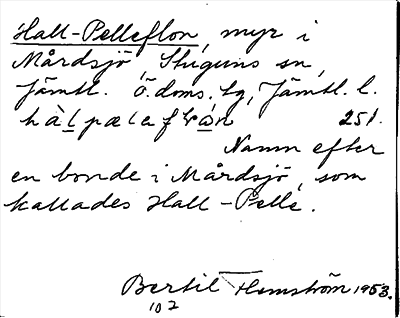 Hall-Pelleflon, myr i
Mårdsjö, Stuguns sn,
Jämtl. ö. doms. tg, Jämtl. l.
251.
Namn efter
en bonde i Mårdsjö, som
kallades Hall-Pelle.
Bertil Flemström 1953.
102